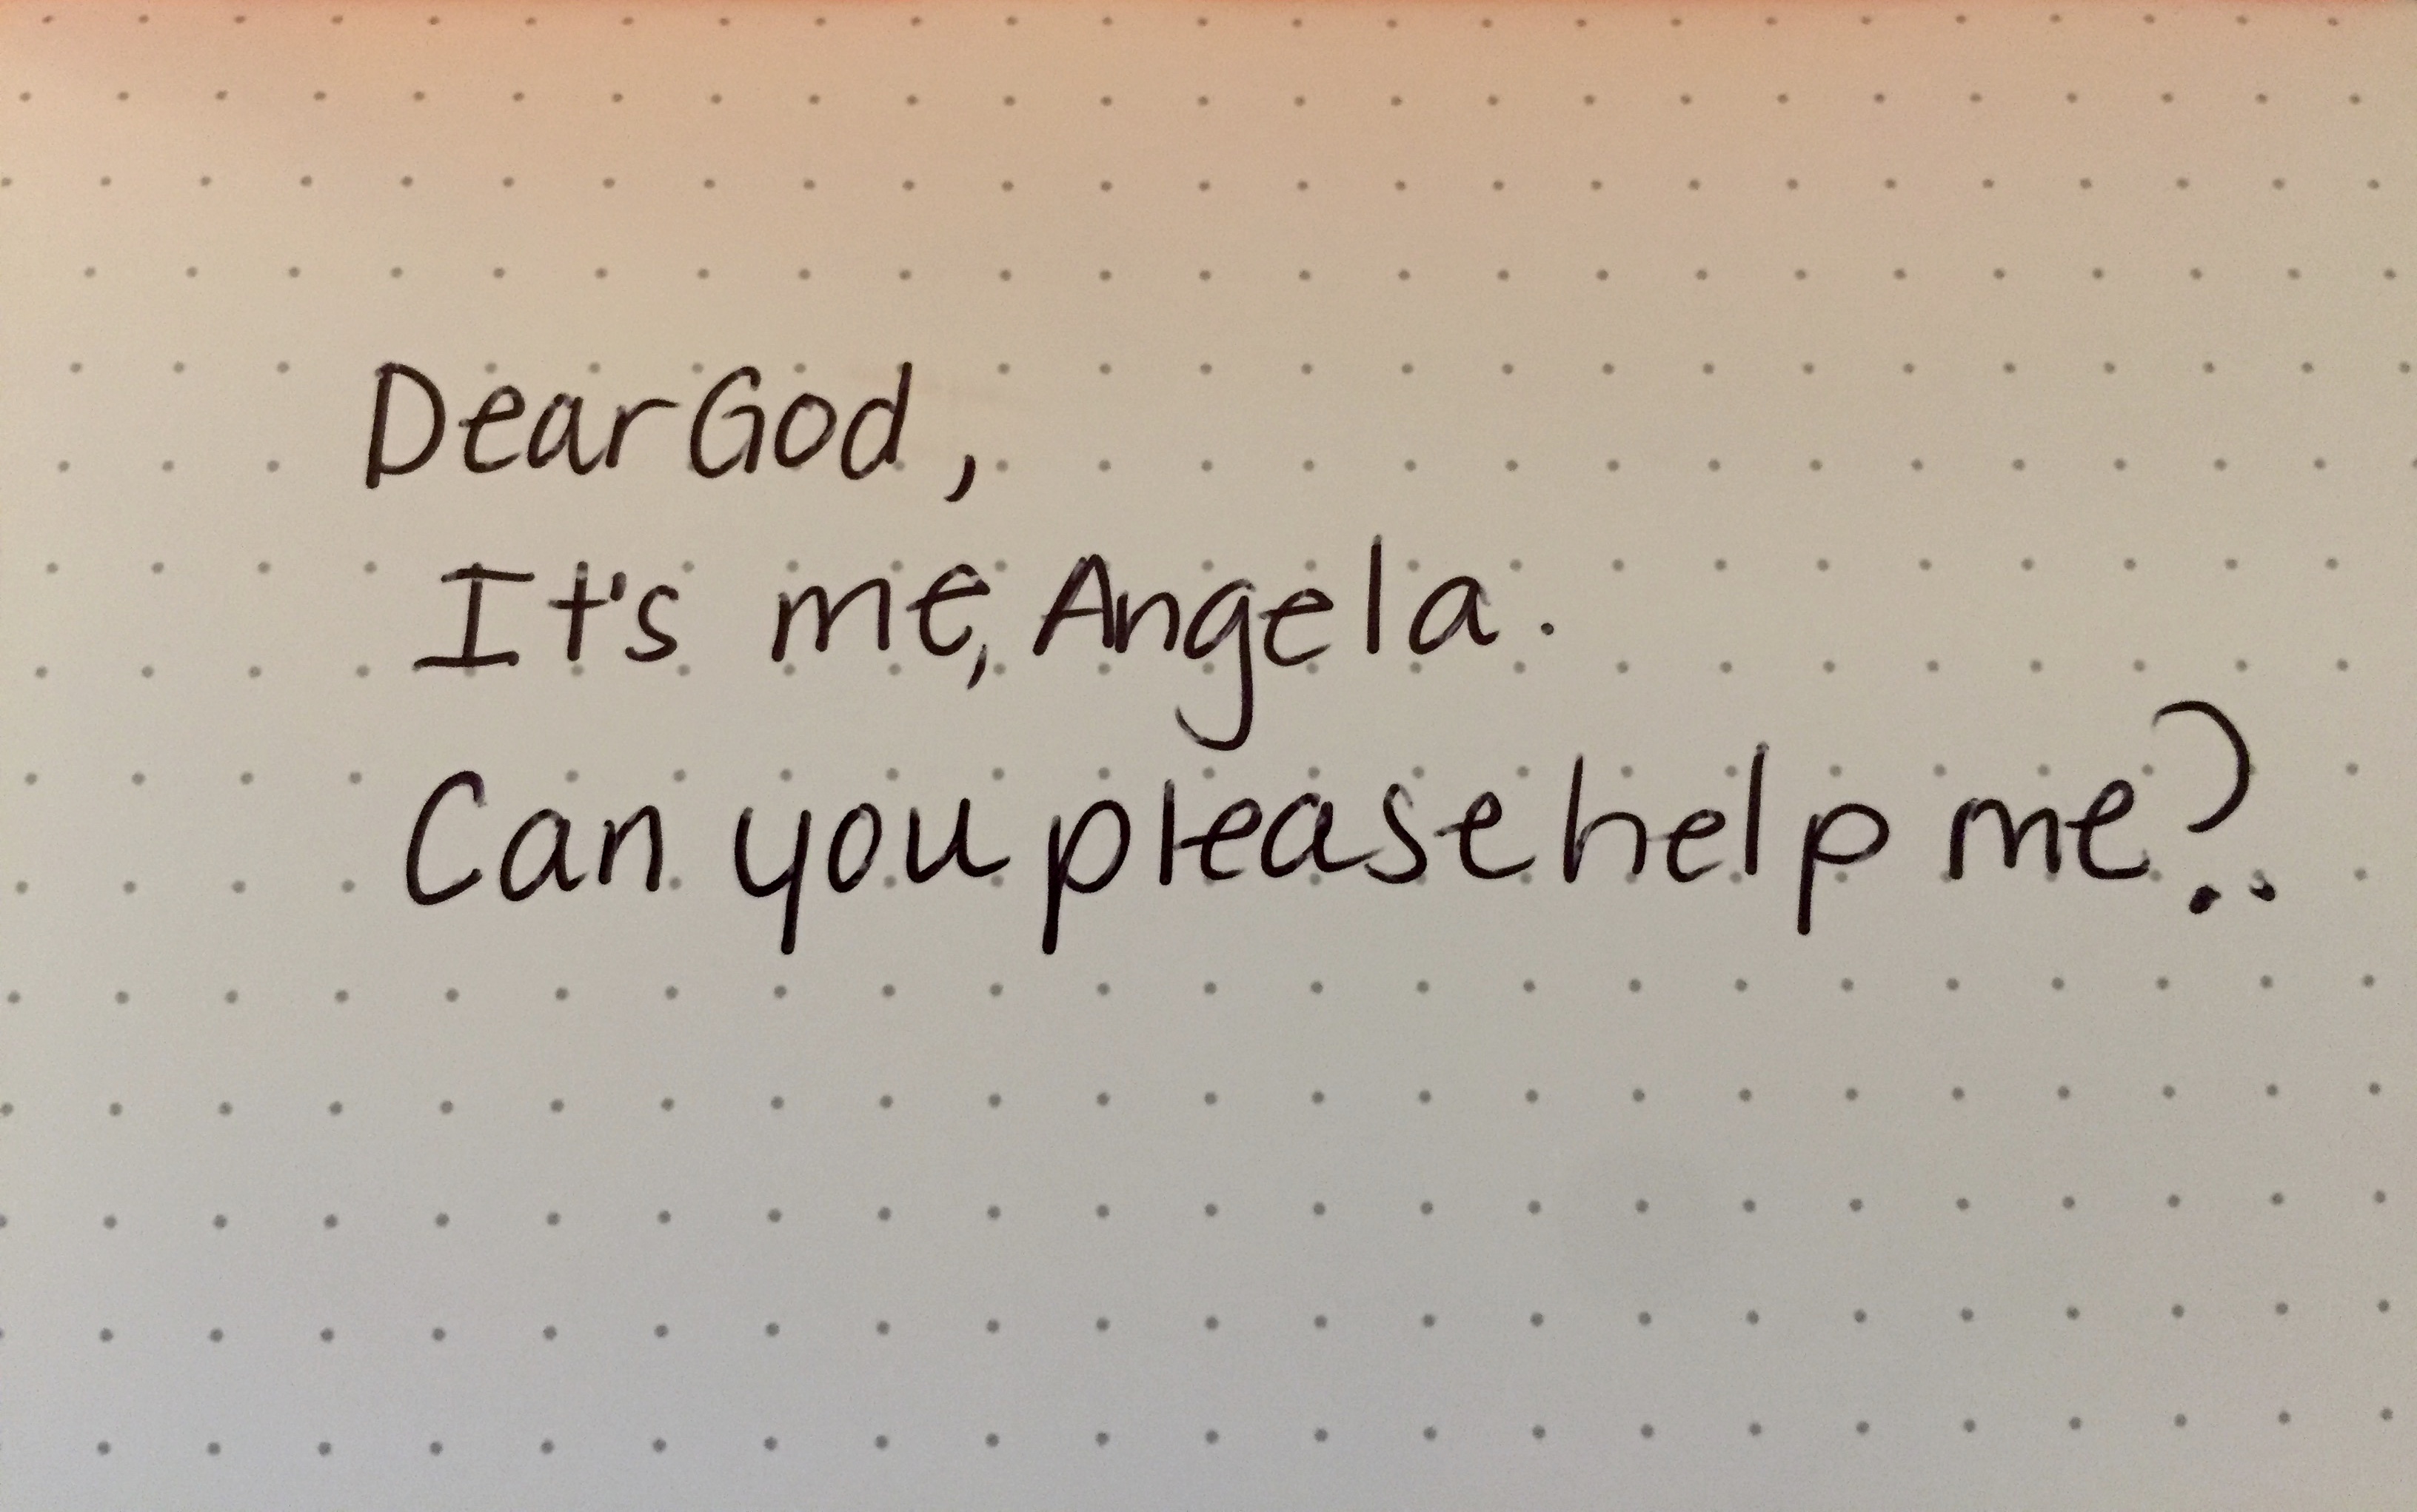 Dear God,
It's me, Angela.
Can you please help me?